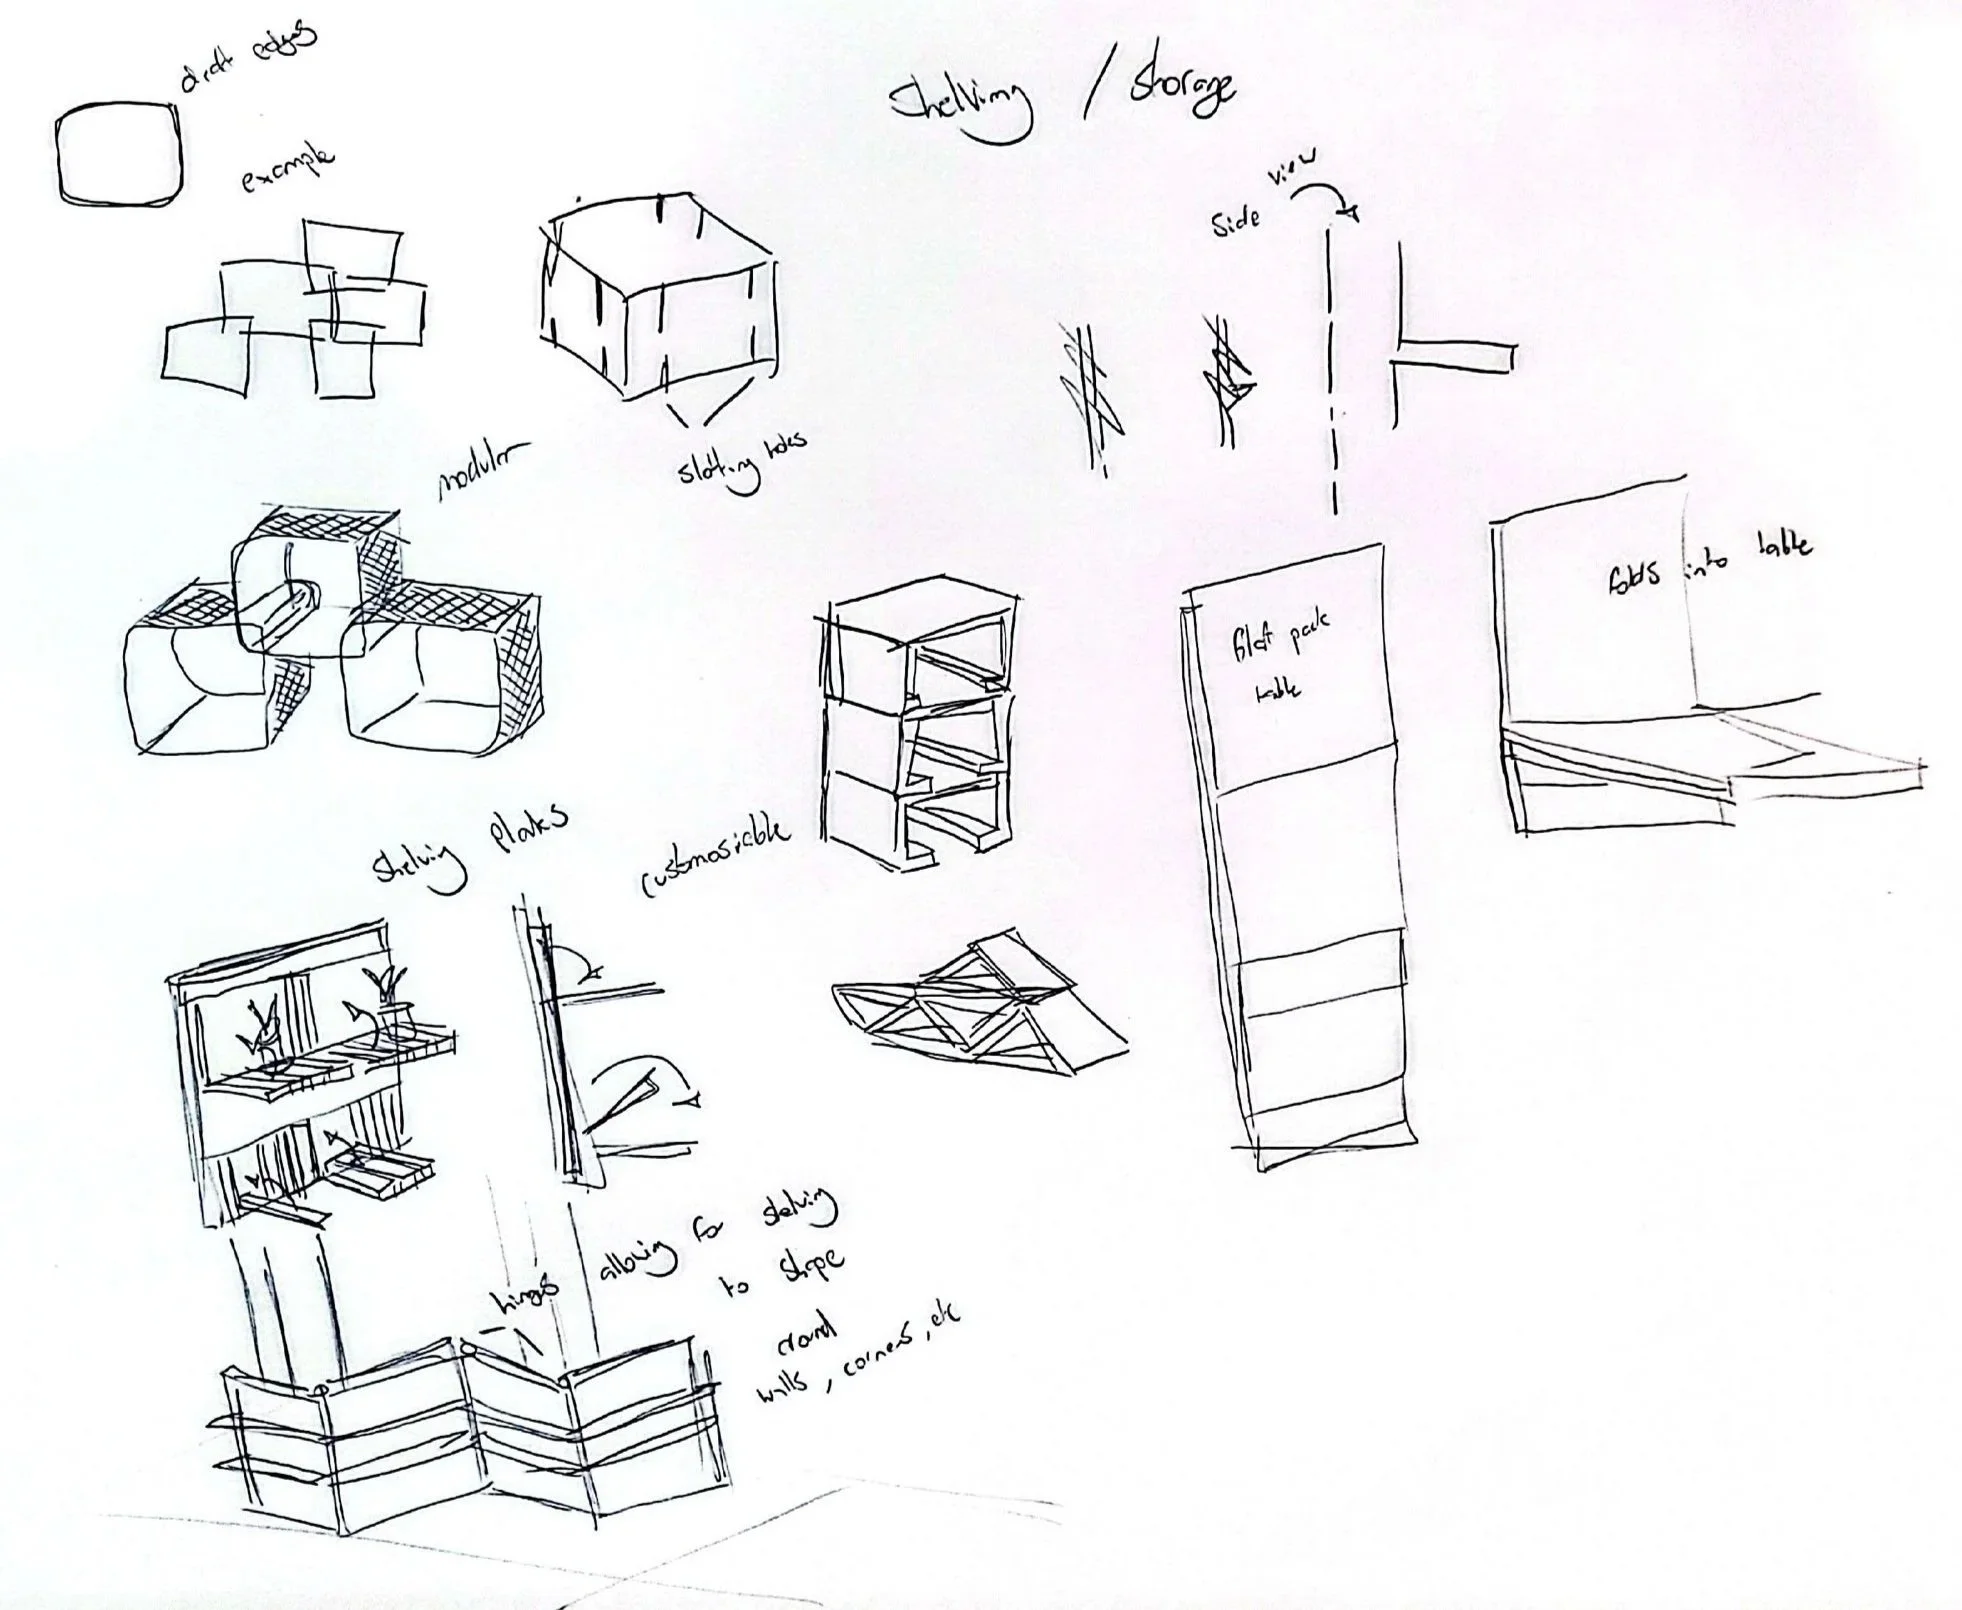 Shelving / Storage
edges
example
Side view
modular
slotting holes
folds into table
flat pack
table
shelving planks
customosiable
hings allowing for shelving
to shape
around
walls, corners, etc